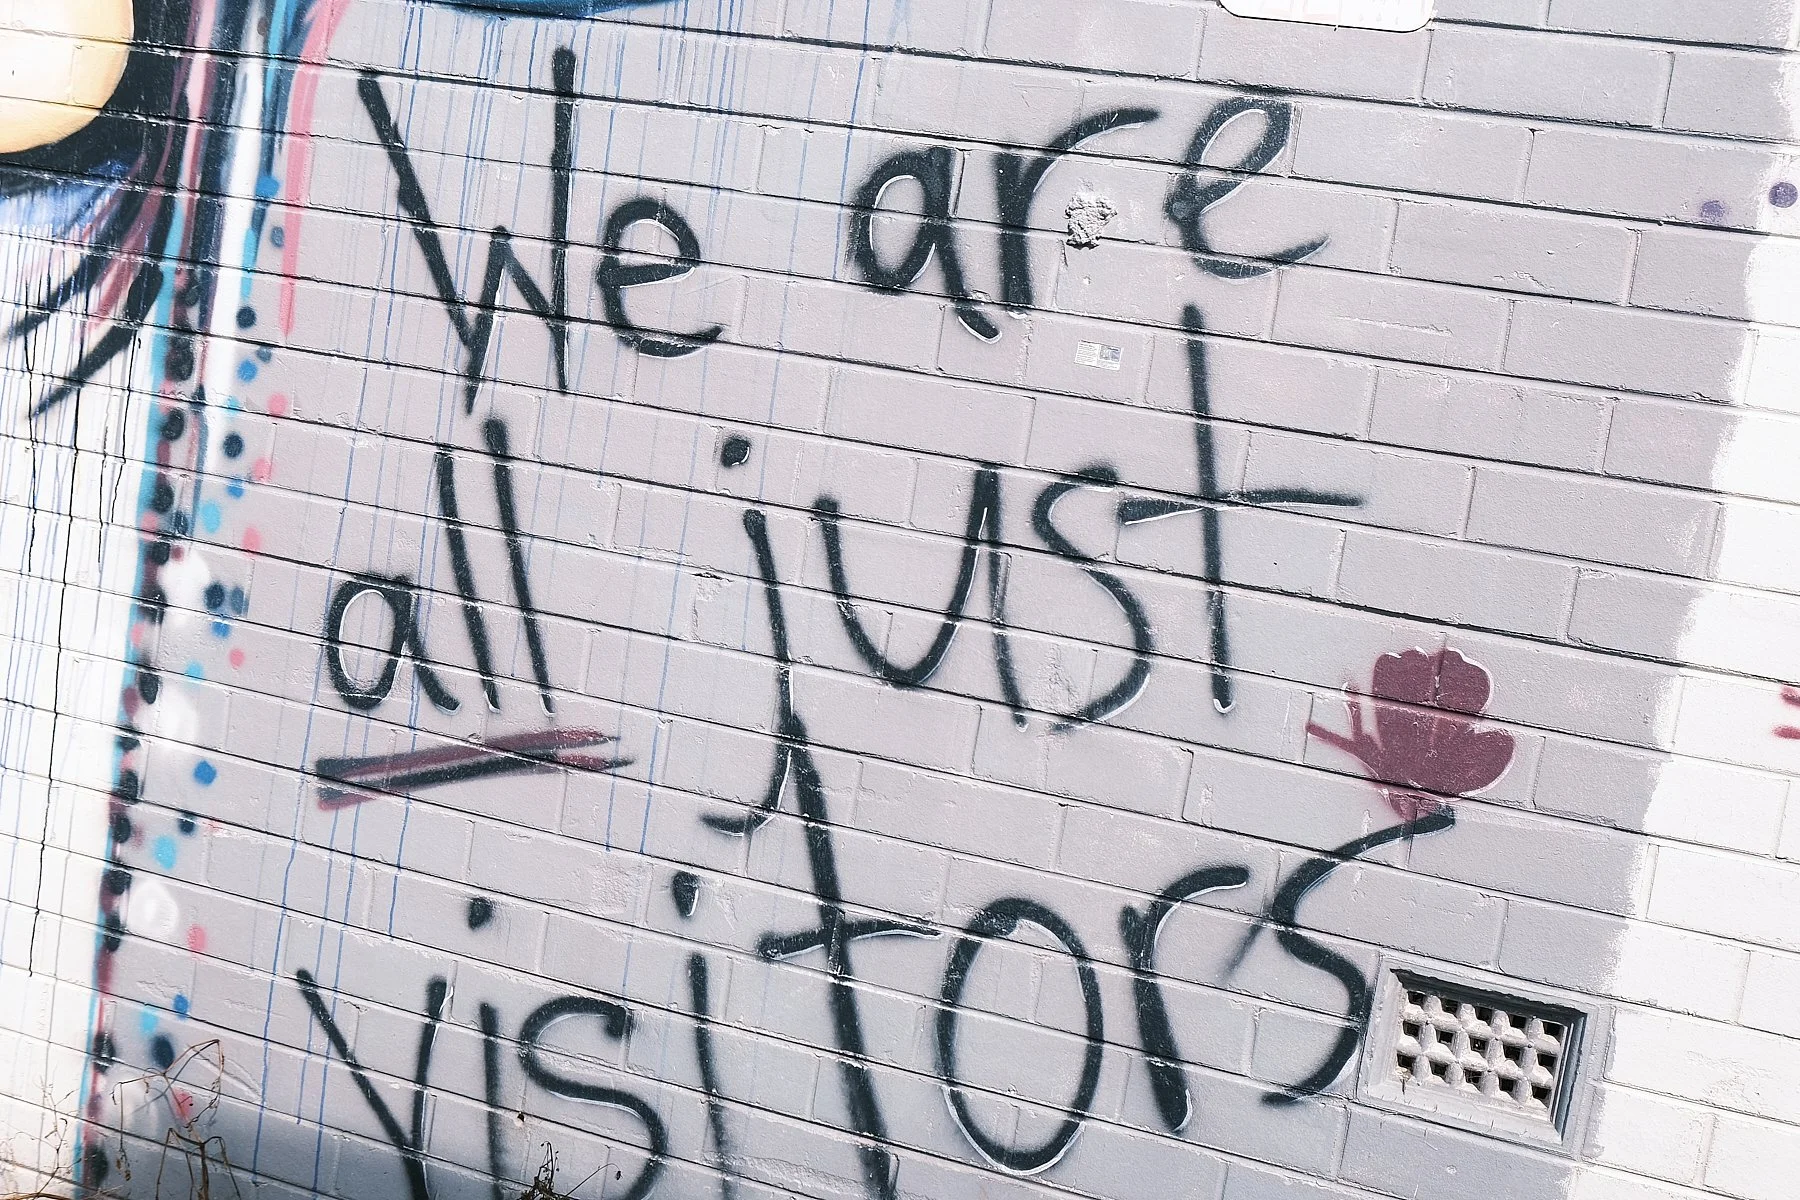 We are
all just
visitors